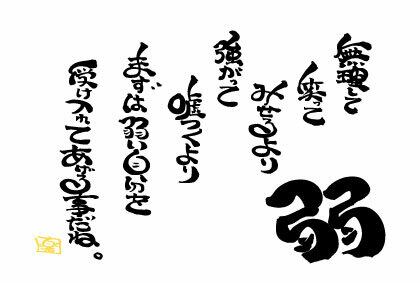 無理して
笑って
みせるより
強がって
嘘つくより
まずは弱い自分を
受け入れてあげる事だね。
弱